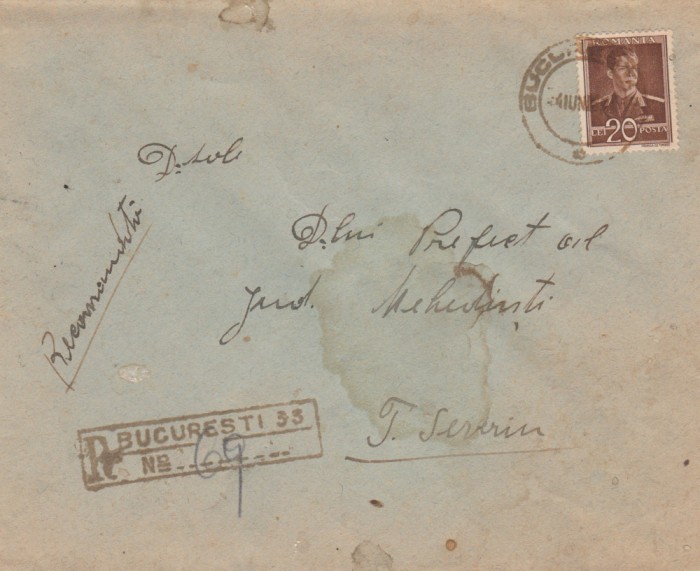 ROMANIA
LEI 20 POSTA
BUCU
4 IUN
D-sale
D-lui Prefect al
Jud. Mehedinți
T. Severin
Recomandată
R BUCURESTI 33
No 69